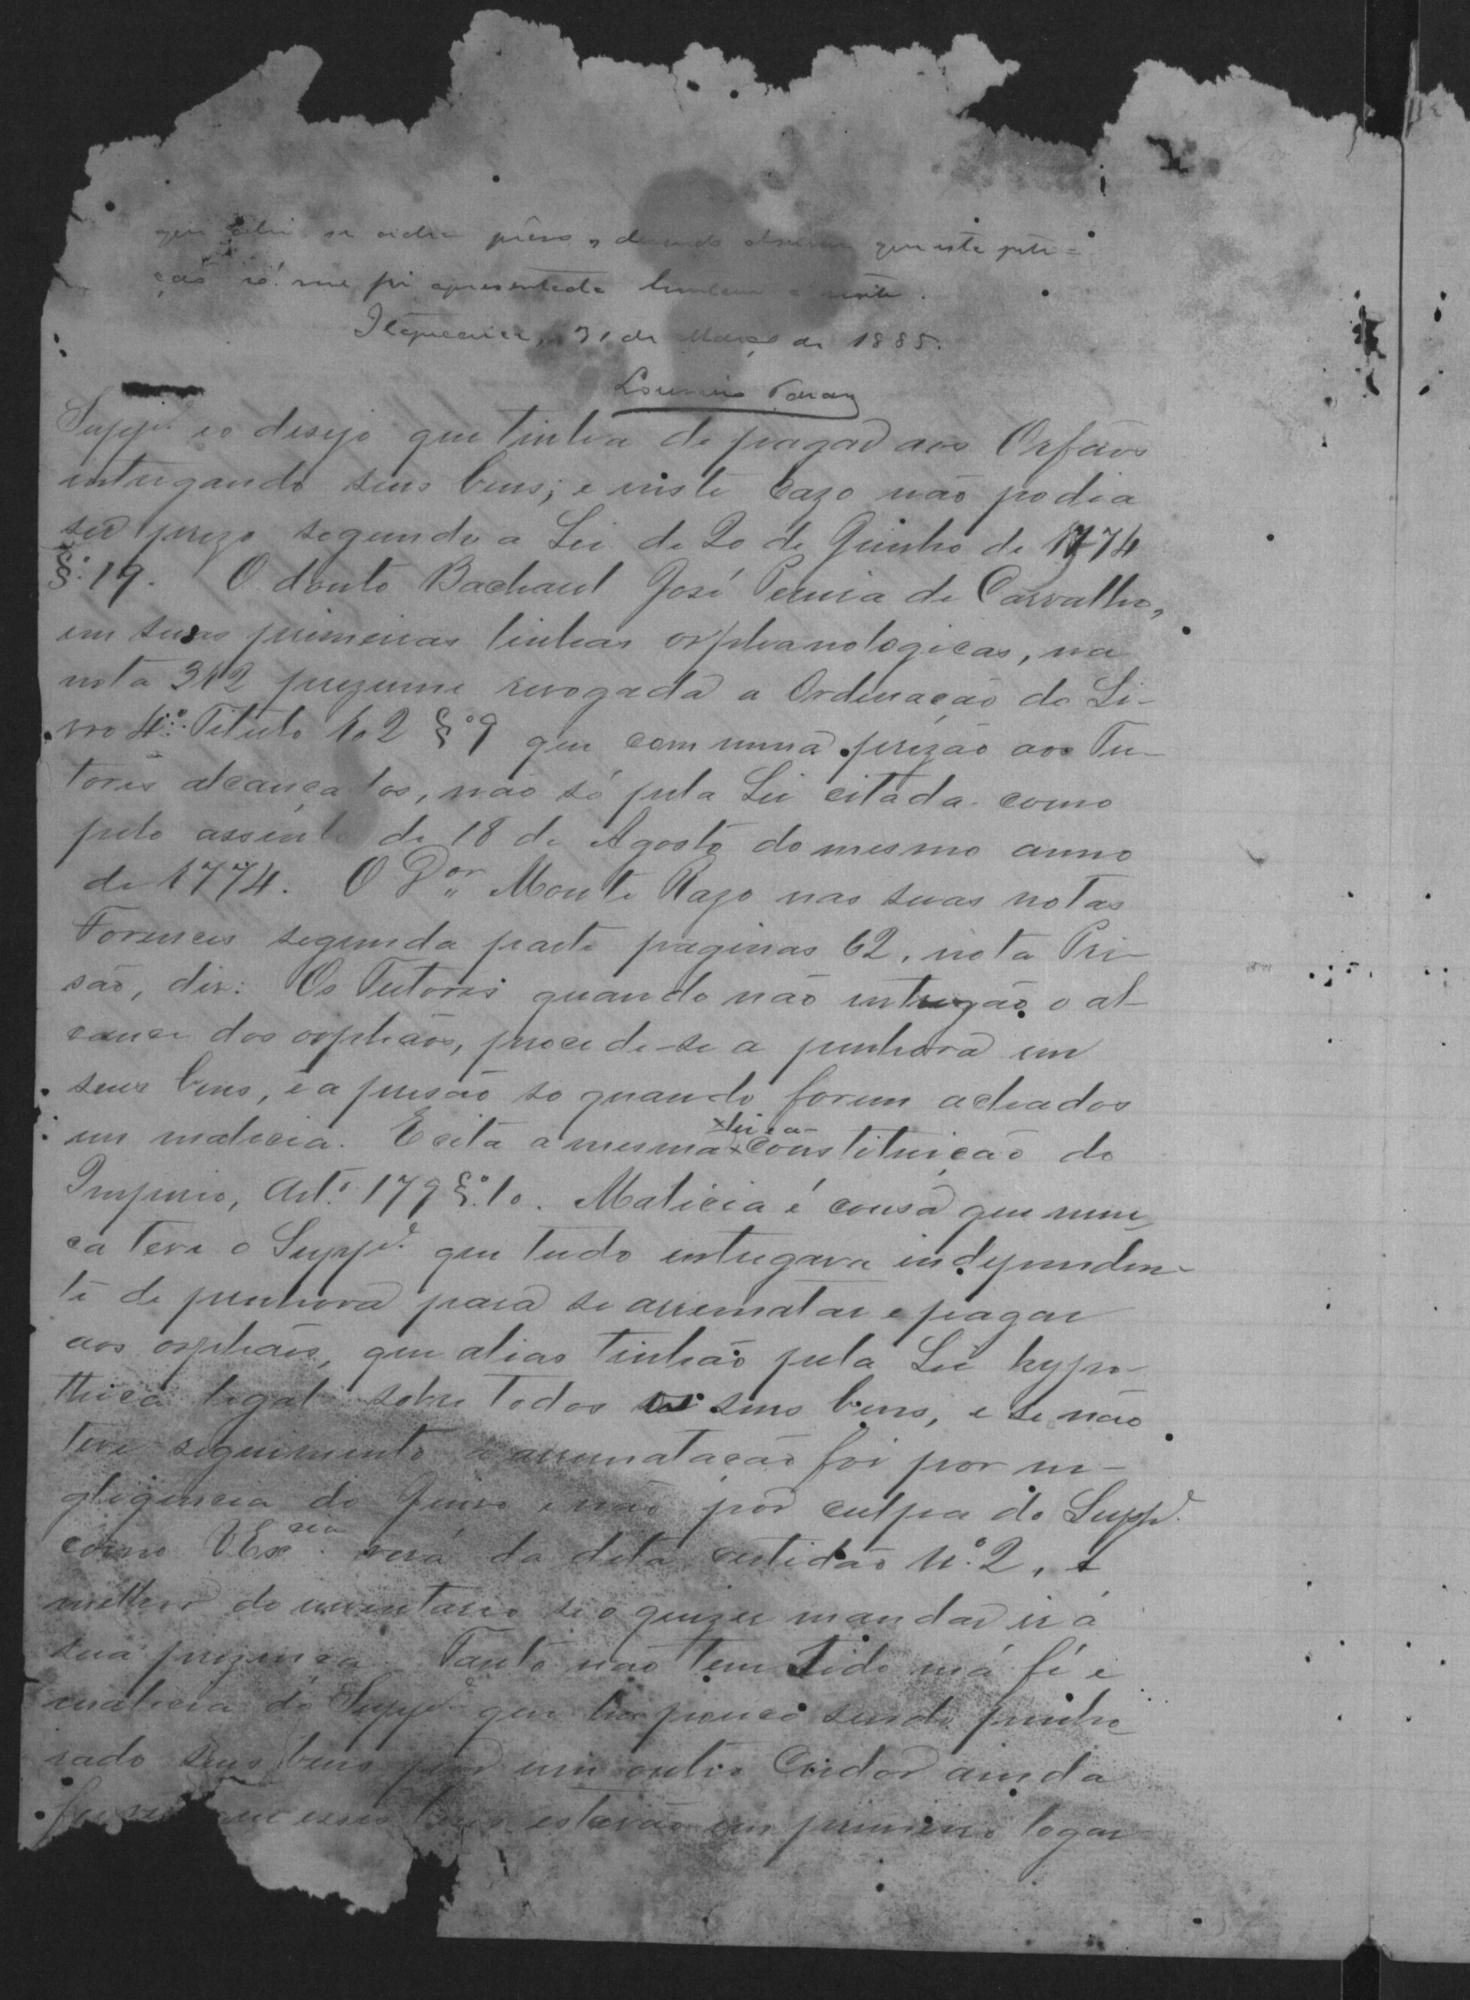 que se preso, devendo observar que esta peti=
ção só me foi apresentada hontem a noite.
Itapecerica, 31 de Março de 1885.
Suppe. e o desejo que tinha de pagar aos Orfãos
intregando seus bens; e neste cazo não podia
ser prezo segundo a Lei de 20 de Junho de 1774
§: 19. O douto Bacharel José Pereira de Carvalho,
em suas primeiras linhas orphanologicas, na
nota 312 prezume revogada a Ordenação do Li-
vro 4º: Titulo 102 §º 9 que commina prizão aos Tu-
tores alcançados, não só pela Lei citada como
pelo assento de 18 de Agosto do mesmo anno
de 1774. O Dor. Monte Razo nas suas notas
Forences segunda parte paginas 62, nota Pri-
são, diz: Os Tutores quando não intregão o al-
cance dos orphãos, procede-se a penhora em
seus bens, e a prisão so quando forem achados
em malicia. E cita a mesma lei e a Constituição do
Imperio, Art. 179 §º 10. Malicia é cousa que nun-
ca teve o Suppe. que tudo intregava independen-
te de penhora para se arrematar e pagar
aos orphãos, que alias tinhão pela Lei hypo-
theca legal sobre todos os seus bens, e se não
teve seguimento a arrematação foi por ne-
gligencia do Juizo e não por culpa do Suppe.
como V Excia. verá da dita certidão Nº. 2, e
melhor do inventario se o quizer mandar ir á
sua prezença. Tanto não tem sido má fé e
malicia do Suppe. que ha pouco sendo penho-
rado seus bens por um outro Credor ainda
esses bens estavão em primeiro logar